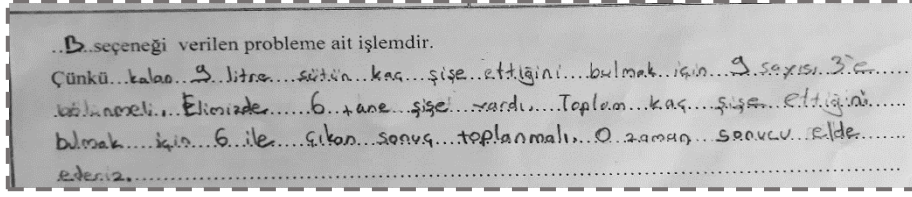 ..B..seçeneği verilen probleme ait işlemdir.
Çünkü...kalan...9...litre...sütün...kaç...şişe...ettiğini...bulmak...için...9 sayısı...3'e
bölünmeli...Elimizde...6...tane...şişe...vardı...Toplam...kaç...şişe...ettiğini
bulmak...için...6 ile...çıkan...sonuç...toplanmalı...O zaman...sonucu...elde
ederiz.